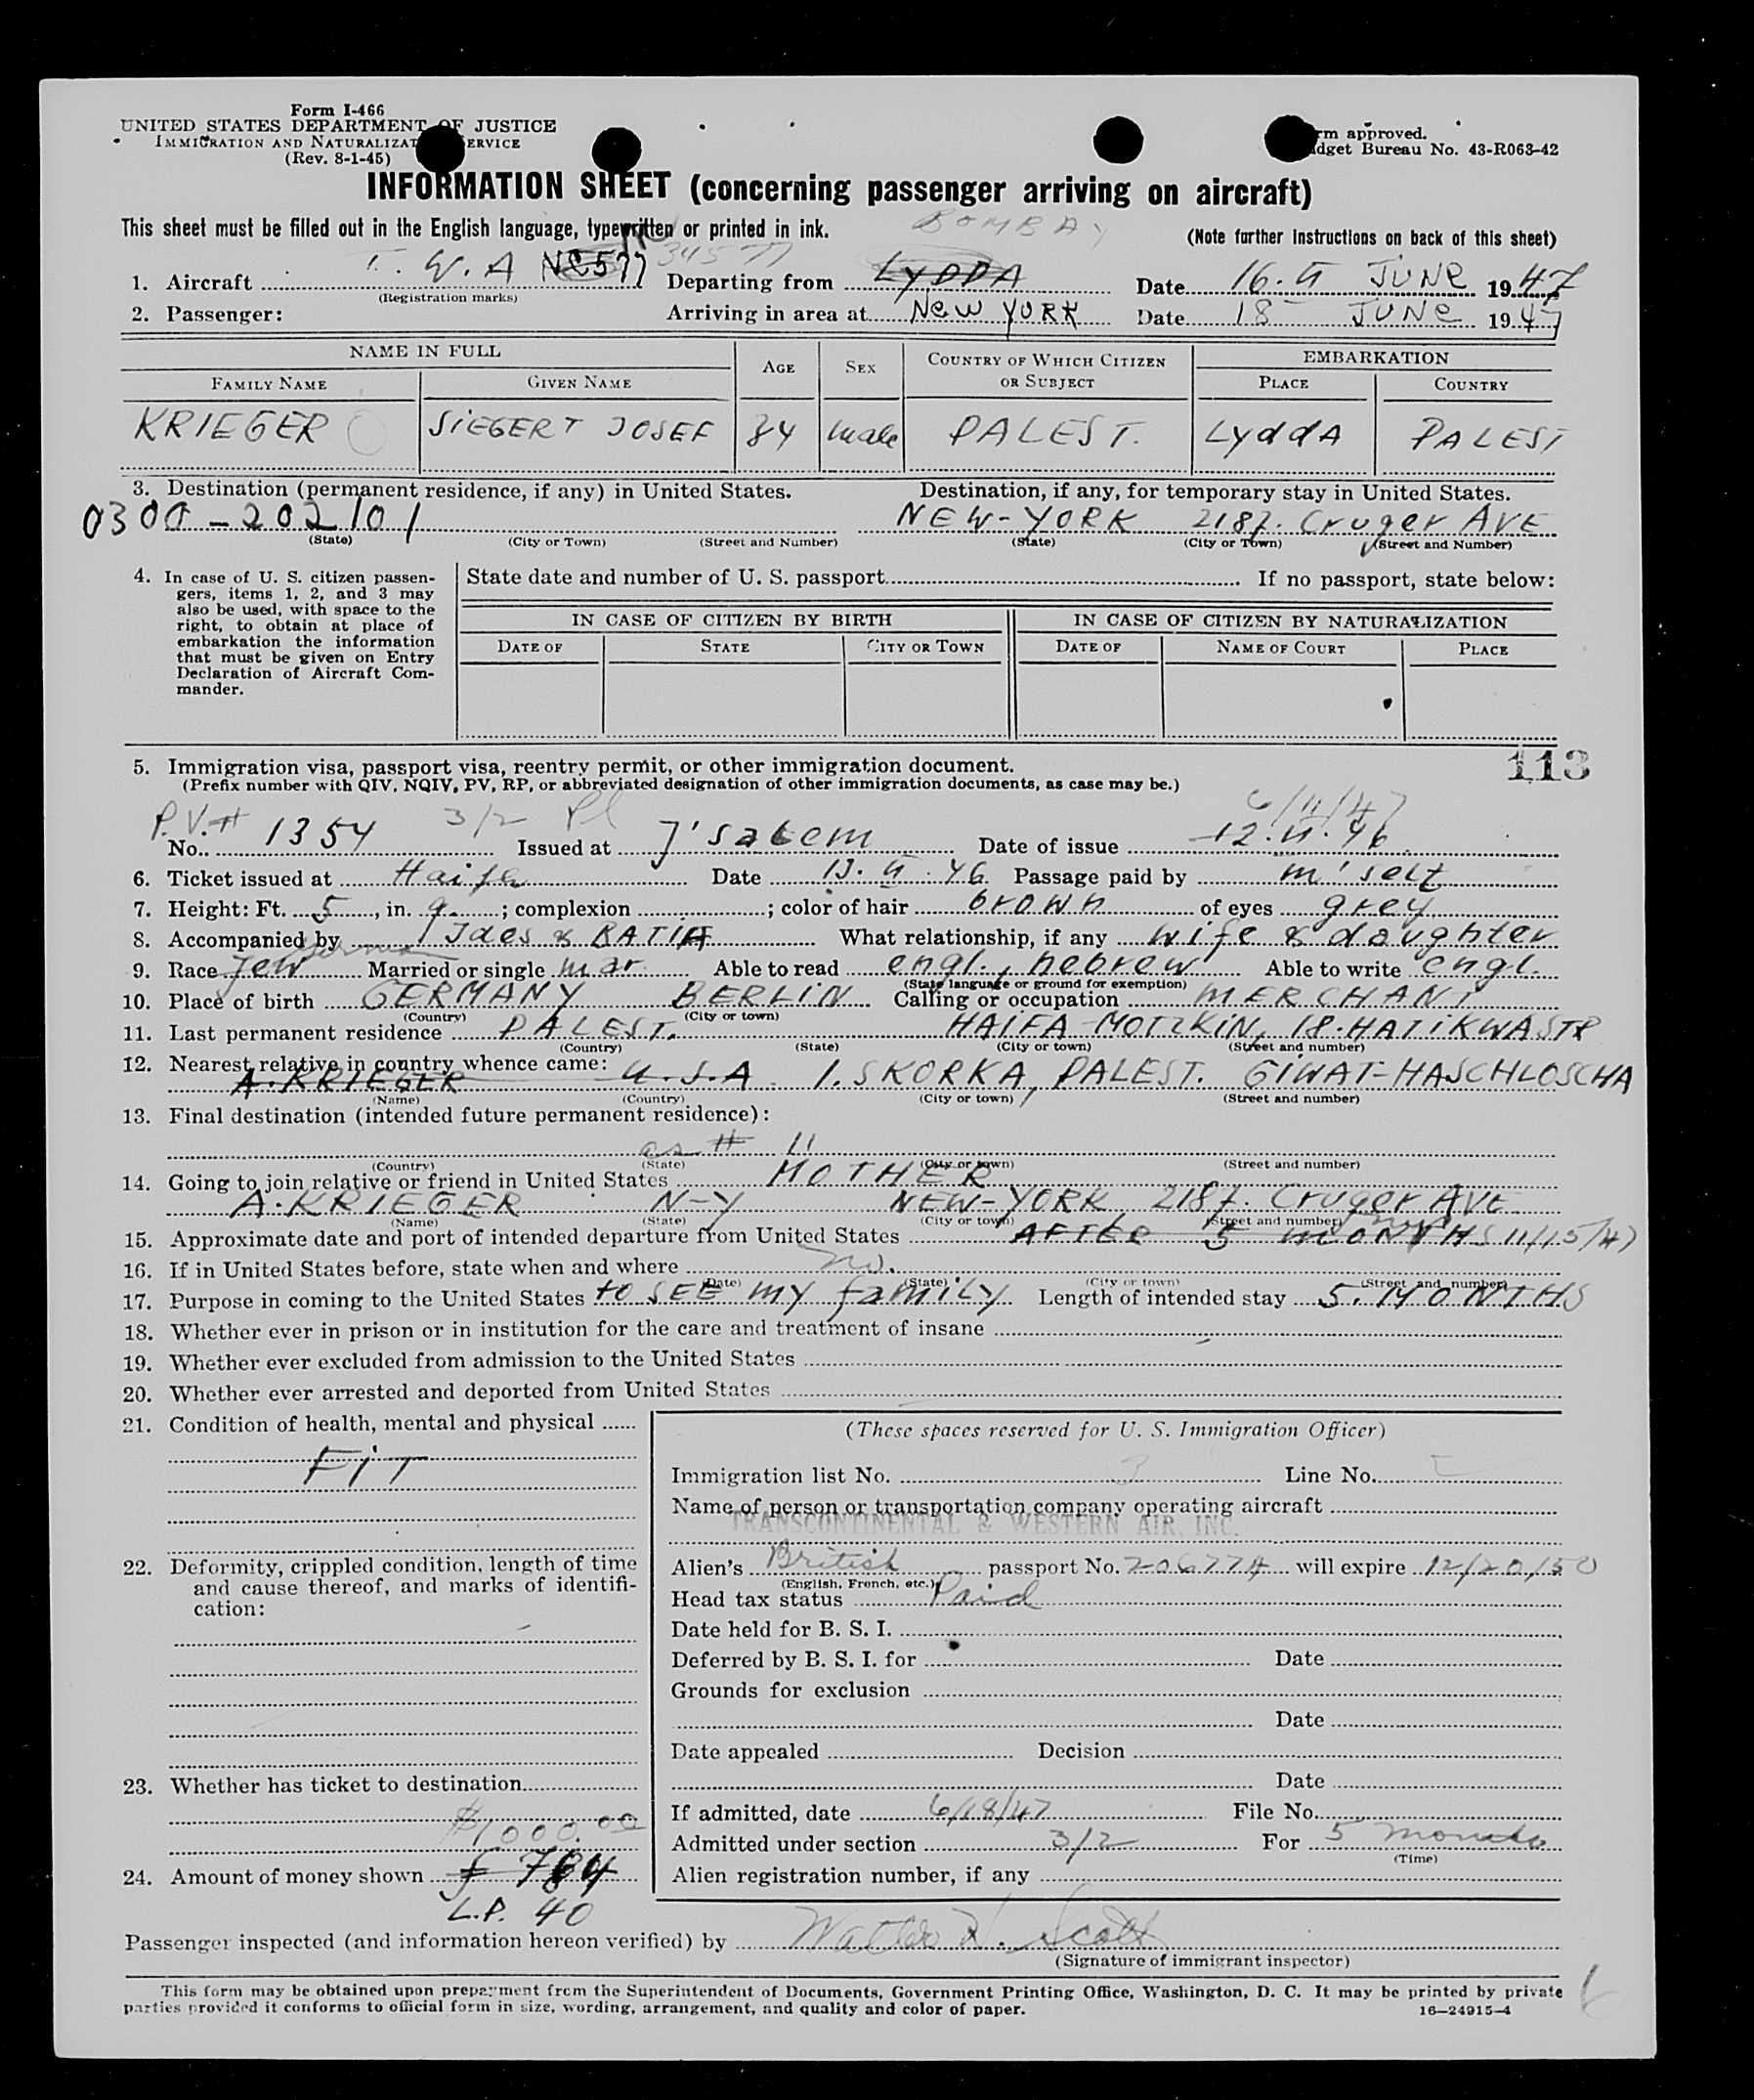 Form I-466
UNITED STATES DEPARTMENT OF JUSTICE
IMMIGRATION AND NATURALIZAT ERVICE
(Rev. 8-1-45)
rm approved.
dget Bureau No. 43-R063-42
INFORMATION SHEET (concerning passenger arriving on aircraft)
This sheet must be filled out in the English language, typewritten or printed in ink.
BOMBAY
(Note further instructions on back of this sheet)
1. Aircraft T. W. A NC577 34577 Departing from LYDDA Date 16. JUNE 1947
(Registration marks)
2. Passenger: Arriving in area at NEW YORK Date 18 JUNE 1947
NAME IN FULL AGE SEX COUNTRY OF WHICH CITIZEN OR SUBJECT EMBARKATION
FAMILY NAME GIVEN NAME PLACE COUNTRY
KRIEGER SIEGERT JOSEF 34 male PALEST. LyddA PALEST
3. Destination (permanent residence, if any) in United States. Destination, if any, for temporary stay in United States.
0300-202101 NEW-YORK 2187. Cruger AVE
(State) (City or Town) (Street and Number) (State) (City or Town) (Street and Number)
4. In case of U. S. citizen passen-
gers, items 1, 2, and 3 may
also be used, with space to the
right, to obtain at place of
embarkation the information
that must be given on Entry
Declaration of Aircraft Com-
mander.
State date and number of U. S. passport If no passport, state below:
IN CASE OF CITIZEN BY BIRTH IN CASE OF CITIZEN BY NATURALIZATION
DATE OF STATE CITY OR TOWN DATE OF NAME OF COURT PLACE
113
5. Immigration visa, passport visa, reentry permit, or other immigration document.
(Prefix number with QIV, NQIV, PV, RP, or abbreviated designation of other immigration documents, as case may be.)
P.V.# 3/2 Pl 6/11/47
No. 1354 Issued at J'salem Date of issue 12. 46
6. Ticket issued at Haifa Date 13. 46 Passage paid by m'self
7. Height: Ft. 5, in. 9.; complexion ; color of hair brown of eyes grey
8. Accompanied by & BATIA What relationship, if any wife & daughter
9. Race Jew Married or single mar. Able to read engl., hebrew Able to write engl.
(State language or ground for exemption)
10. Place of birth GERMANY BERLIN Calling or occupation MERCHANT
(Country) (City or town)
11. Last permanent residence PALEST. HAIFA-MOTZKIN, 18. HATIKWA STR
(Country) (State) (City or town) (Street and number)
12. Nearest relative in country whence came:
A. KRIEGER U.S.A. I. SKORKA, PALEST. GIWAT-HASCHLOSCHA
(Name) (Country) (City or town) (Street and number)
13. Final destination (intended future permanent residence):
as # 11
(Country) (State) (City or town) (Street and number)
14. Going to join relative or friend in United States MOTHER
A. KRIEGER N-Y NEW-YORK 2187. Cruger AVE
(Name) (State) (City or town) (Street and number)
15. Approximate date and port of intended departure from United States AFTER 5 MONTHS 11/15/47
16. If in United States before, state when and where No.
(Date) (State) (City or town) (Street and number)
17. Purpose in coming to the United States to SEE my family Length of intended stay 5. MONTHS
18. Whether ever in prison or in institution for the care and treatment of insane
19. Whether ever excluded from admission to the United States
20. Whether ever arrested and deported from United States
21. Condition of health, mental and physical
FiT
22. Deformity, crippled condition, length of time
and cause thereof, and marks of identifi-
cation:
23. Whether has ticket to destination
$1000.00
24. Amount of money shown £ 784
L.P. 40
(These spaces reserved for U. S. Immigration Officer)
Immigration list No. 3 Line No.
Name of person or transportation company operating aircraft
TRANSCONTINENTAL & WESTERN AIR, INC.
Alien's British passport No. 206774 will expire 12/20/50
(English, French, etc.)
Head tax status Paid
Date held for B. S. I.
Deferred by B. S. I. for Date
Grounds for exclusion
Date
Date appealed Decision
Date
If admitted, date 6/18/47 File No.
Admitted under section 3/2 For 5 months
(Time)
Alien registration number, if any
Passenger inspected (and information hereon verified) by Walter H. Scott
(Signature of immigrant inspector)
This form may be obtained upon prepayment from the Superintendent of Documents, Government Printing Office, Washington, D. C. It may be printed by private
parties provided it conforms to official form in size, wording, arrangement, and quality and color of paper. 16—24915-4